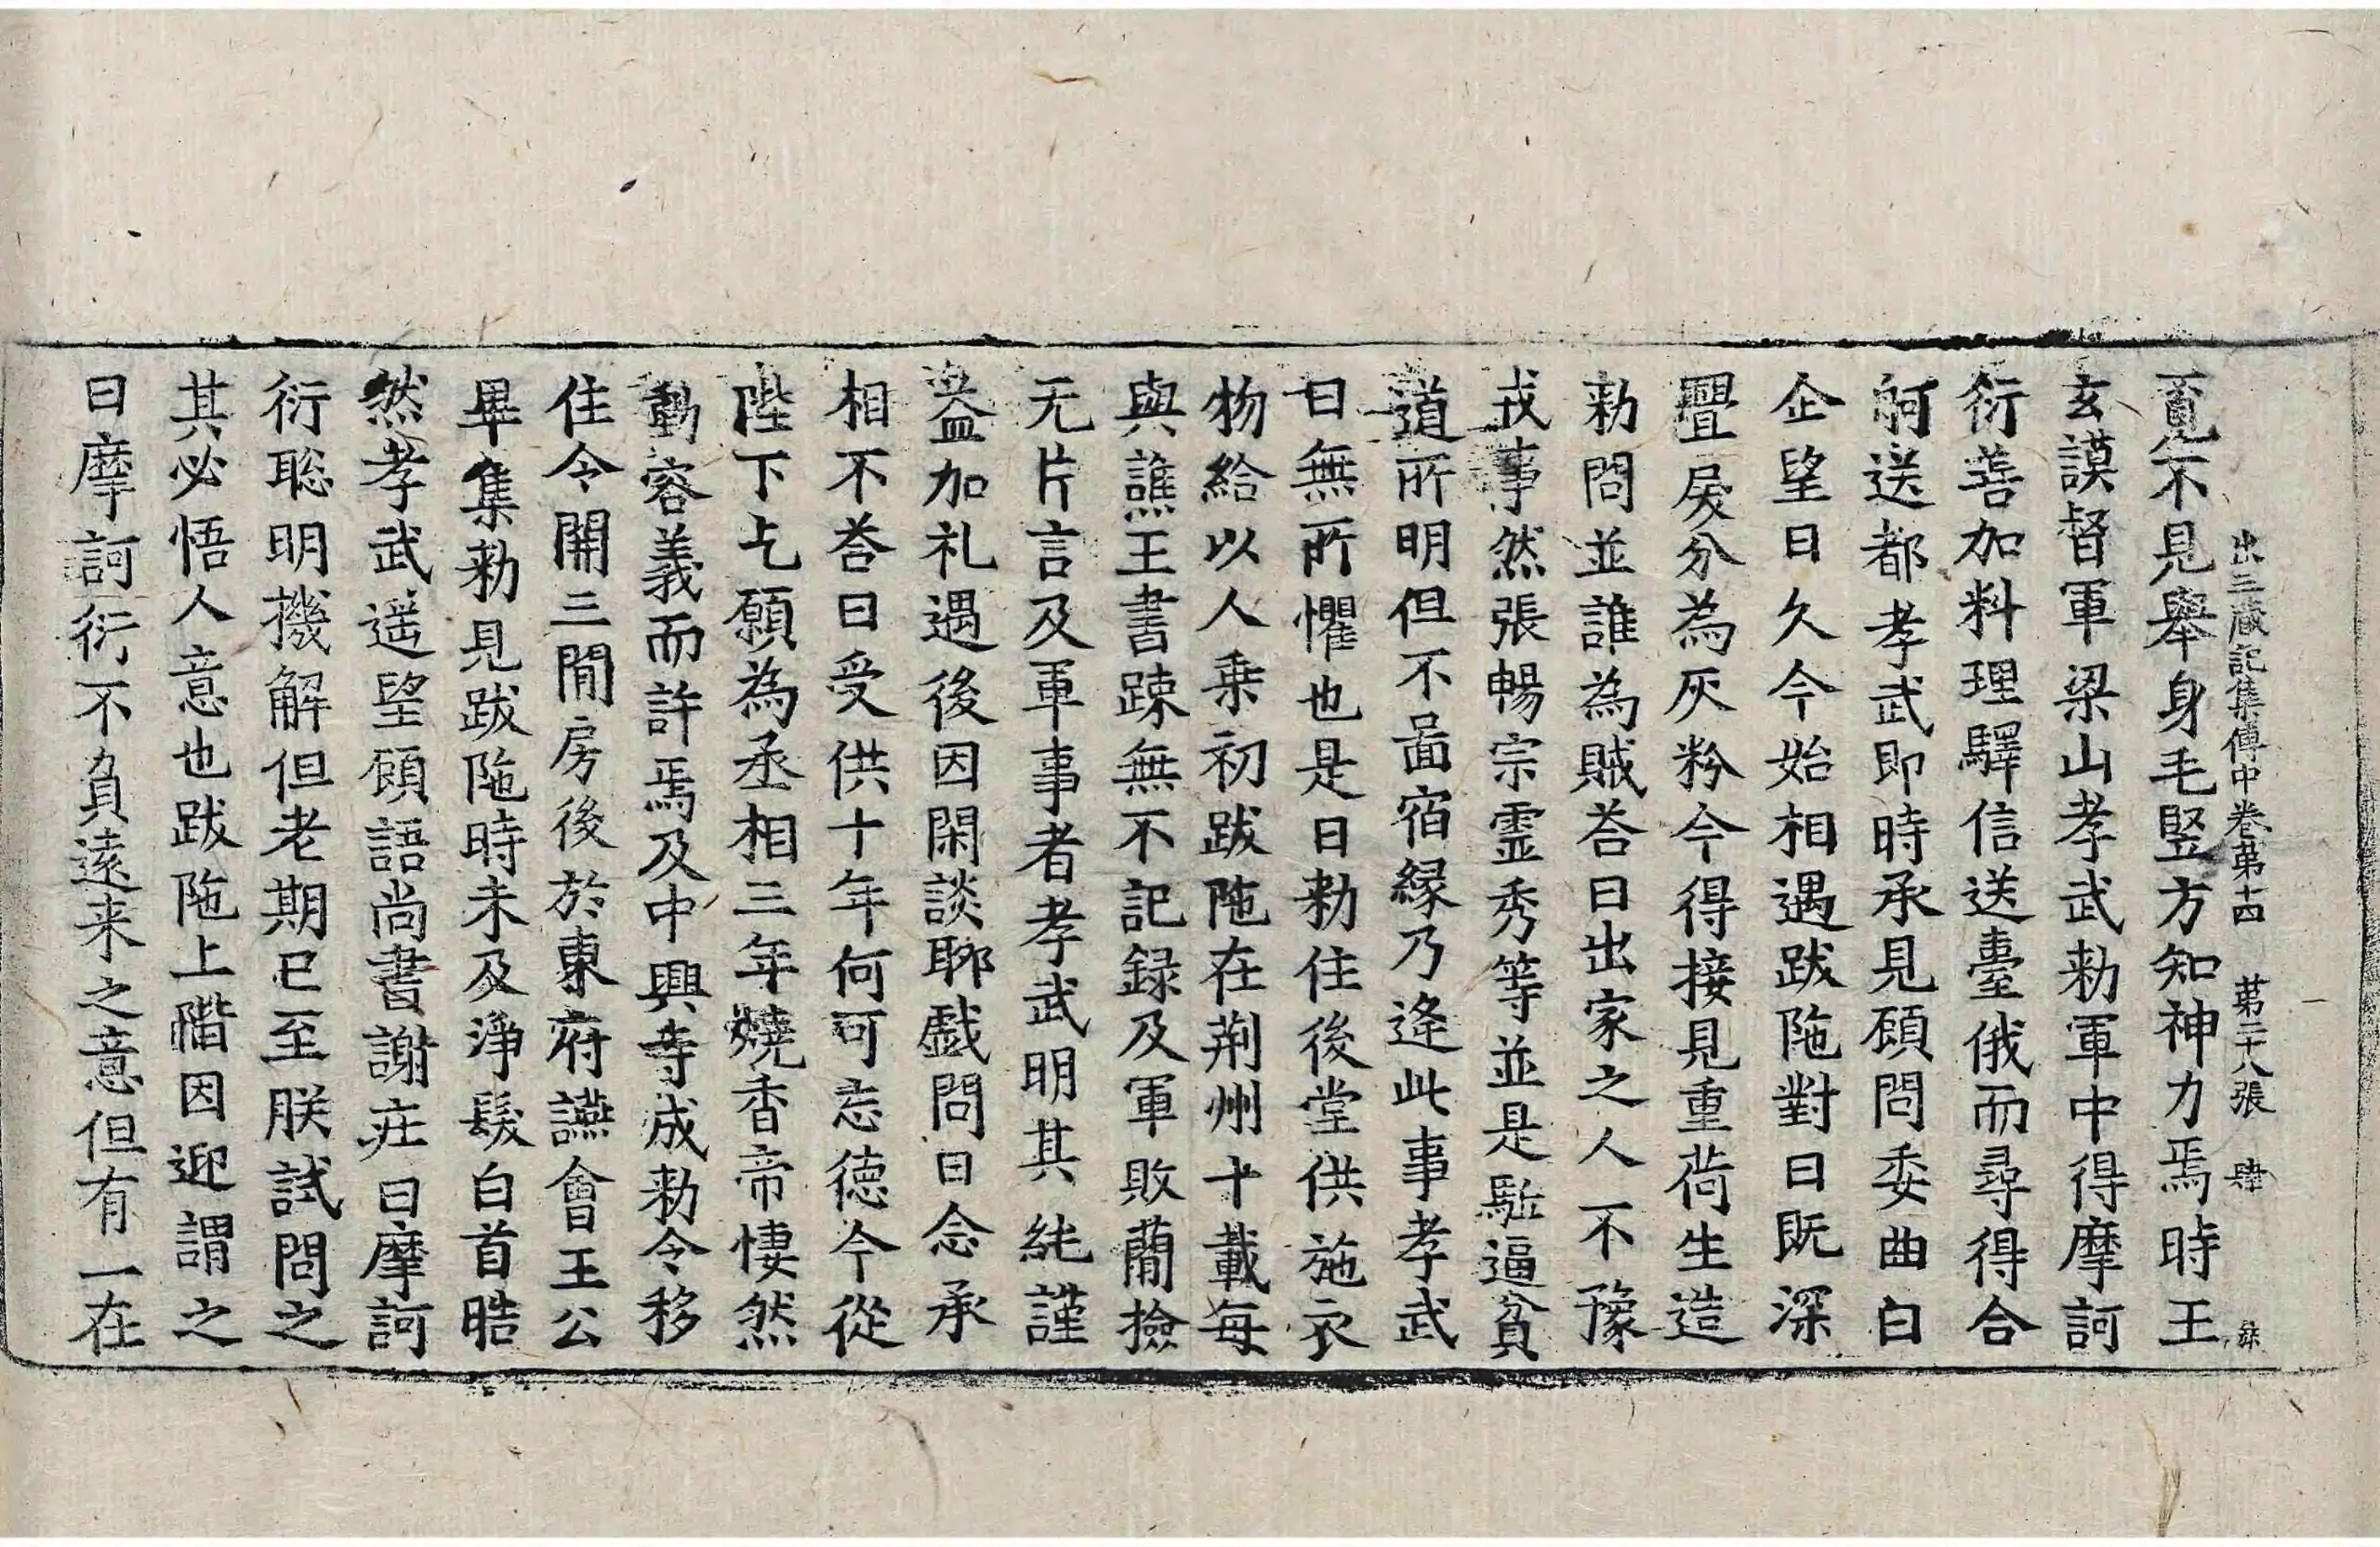 出三蔵記集傳中卷第十四　第二十八張　肆
覓不見舉身毛竪方知神力焉時王
玄謨督軍梁山孝武勑軍中得摩訶
衍善加料理驛信送臺俄而尋得合
舸送都孝武即時承見顧問委曲曰
企望日久今始相遇跋陁對曰既深
舋戾分為灰粉今得接見重荷生造
勑問並誰為賊荅曰出家之人不豫
戎事然張暢宗霊秀等並是駈逼貧
道所明但不啚宿緣乃逢此事孝武
曰無所懼也是日勑住後堂供施衣
物給以人乗初跋陁在荆州十載每
與譙王書踈無不記録及軍敗蕳撿
无片言及軍事者孝武明其純謹
益加礼遇後因閑談聊戯問曰念承
相不荅曰受供十年何可忘德今從
陛下乞願為丞相三年燒香帝悽然
動容義而許焉及中興寺成勑令移
住令開三閒房後於東府讌會王公
畢集勑見跋陁時未及淨髮白首皓
然孝武遥望顧語尚書謝庄曰摩訶
衍聡明機解但老期已至朕試問之
其必悟人意也跋陁上階因迎謂之
曰摩訶衍不負遠来之意但有一在